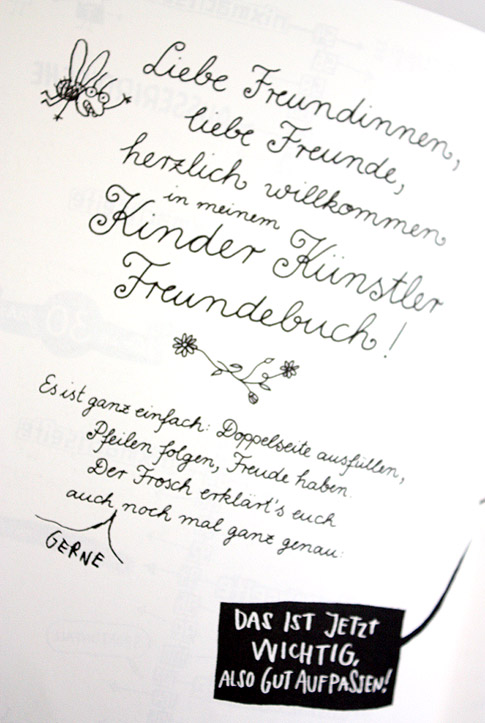 Liebe Freundinnen,
liebe Freunde,
herzlich willkommen
in meinem
Kinder Künstler
Freundebuch!
Es ist ganz einfach: Doppelseite ausfüllen,
Pfeilen folgen, Freude haben.
Der Frosch erklärt's euch
auch noch mal ganz genau:
GERNE
DAS IST JETZT
WICHTIG,
ALSO GUT AUFPASSEN!